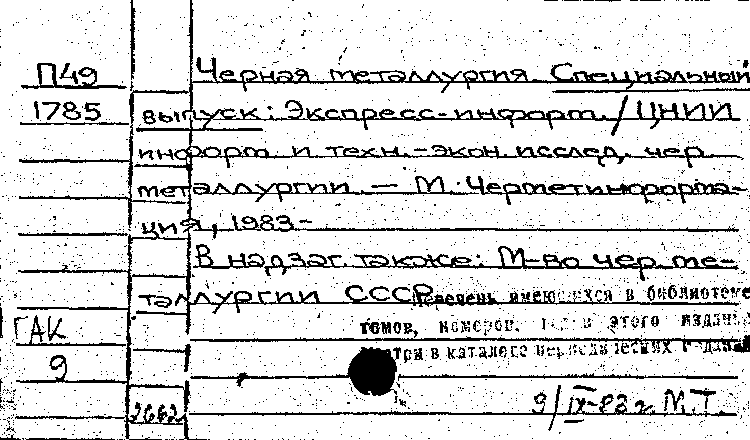 П49
1785
Черная металлургия. Специальный
выпуск: Экспресс-информ. / ЦНИИ
информ. и техн.-экон. исслед. чер.
металлургии. — М.: Черметинформа-
ция, 1983-
В надзаг. также: М-во чер. ме-
таллургии СССР.
Перечень имеющихся в библиотеке
томов, номеров, этого издания
в каталоге периодических изданий
ГАК
9
2662
9/IX-83 г. М.Т.